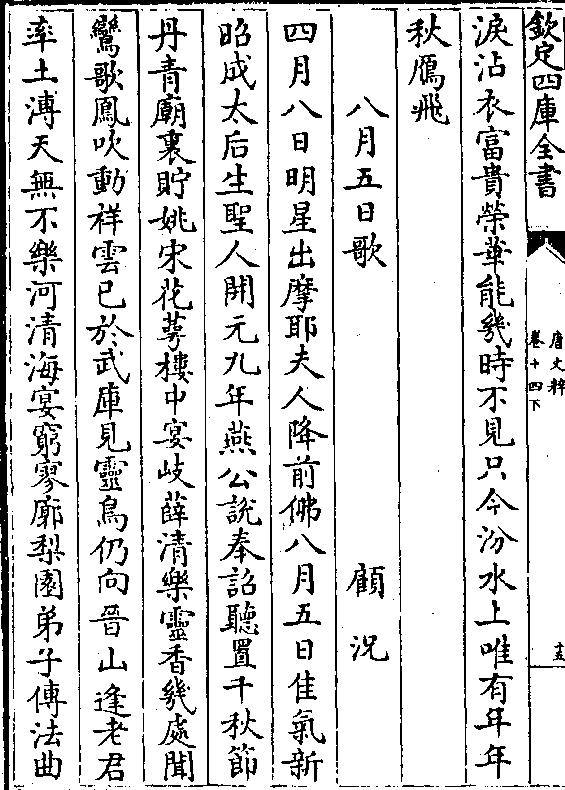 欽定四庫全書
唐文粹
卷十四下
十五
淚沾衣富貴榮華能幾時不見只今汾水上唯有年年
秋鴈飛
八月五日歌　顧況
四月八日明星出摩耶夫人降前佛八月五日佳氣新
昭成太后生聖人開元九年燕公說奉詔聽置千秋節
丹青廟裏貯姚宋花萼樓中宴岐薛清樂靈香幾處聞
鸞歌鳳吹動祥雲已於武庫見靈鳥仍向晉山逢老君
率土溥天無不樂河清海宴窮寥廓梨園弟子傳法曲